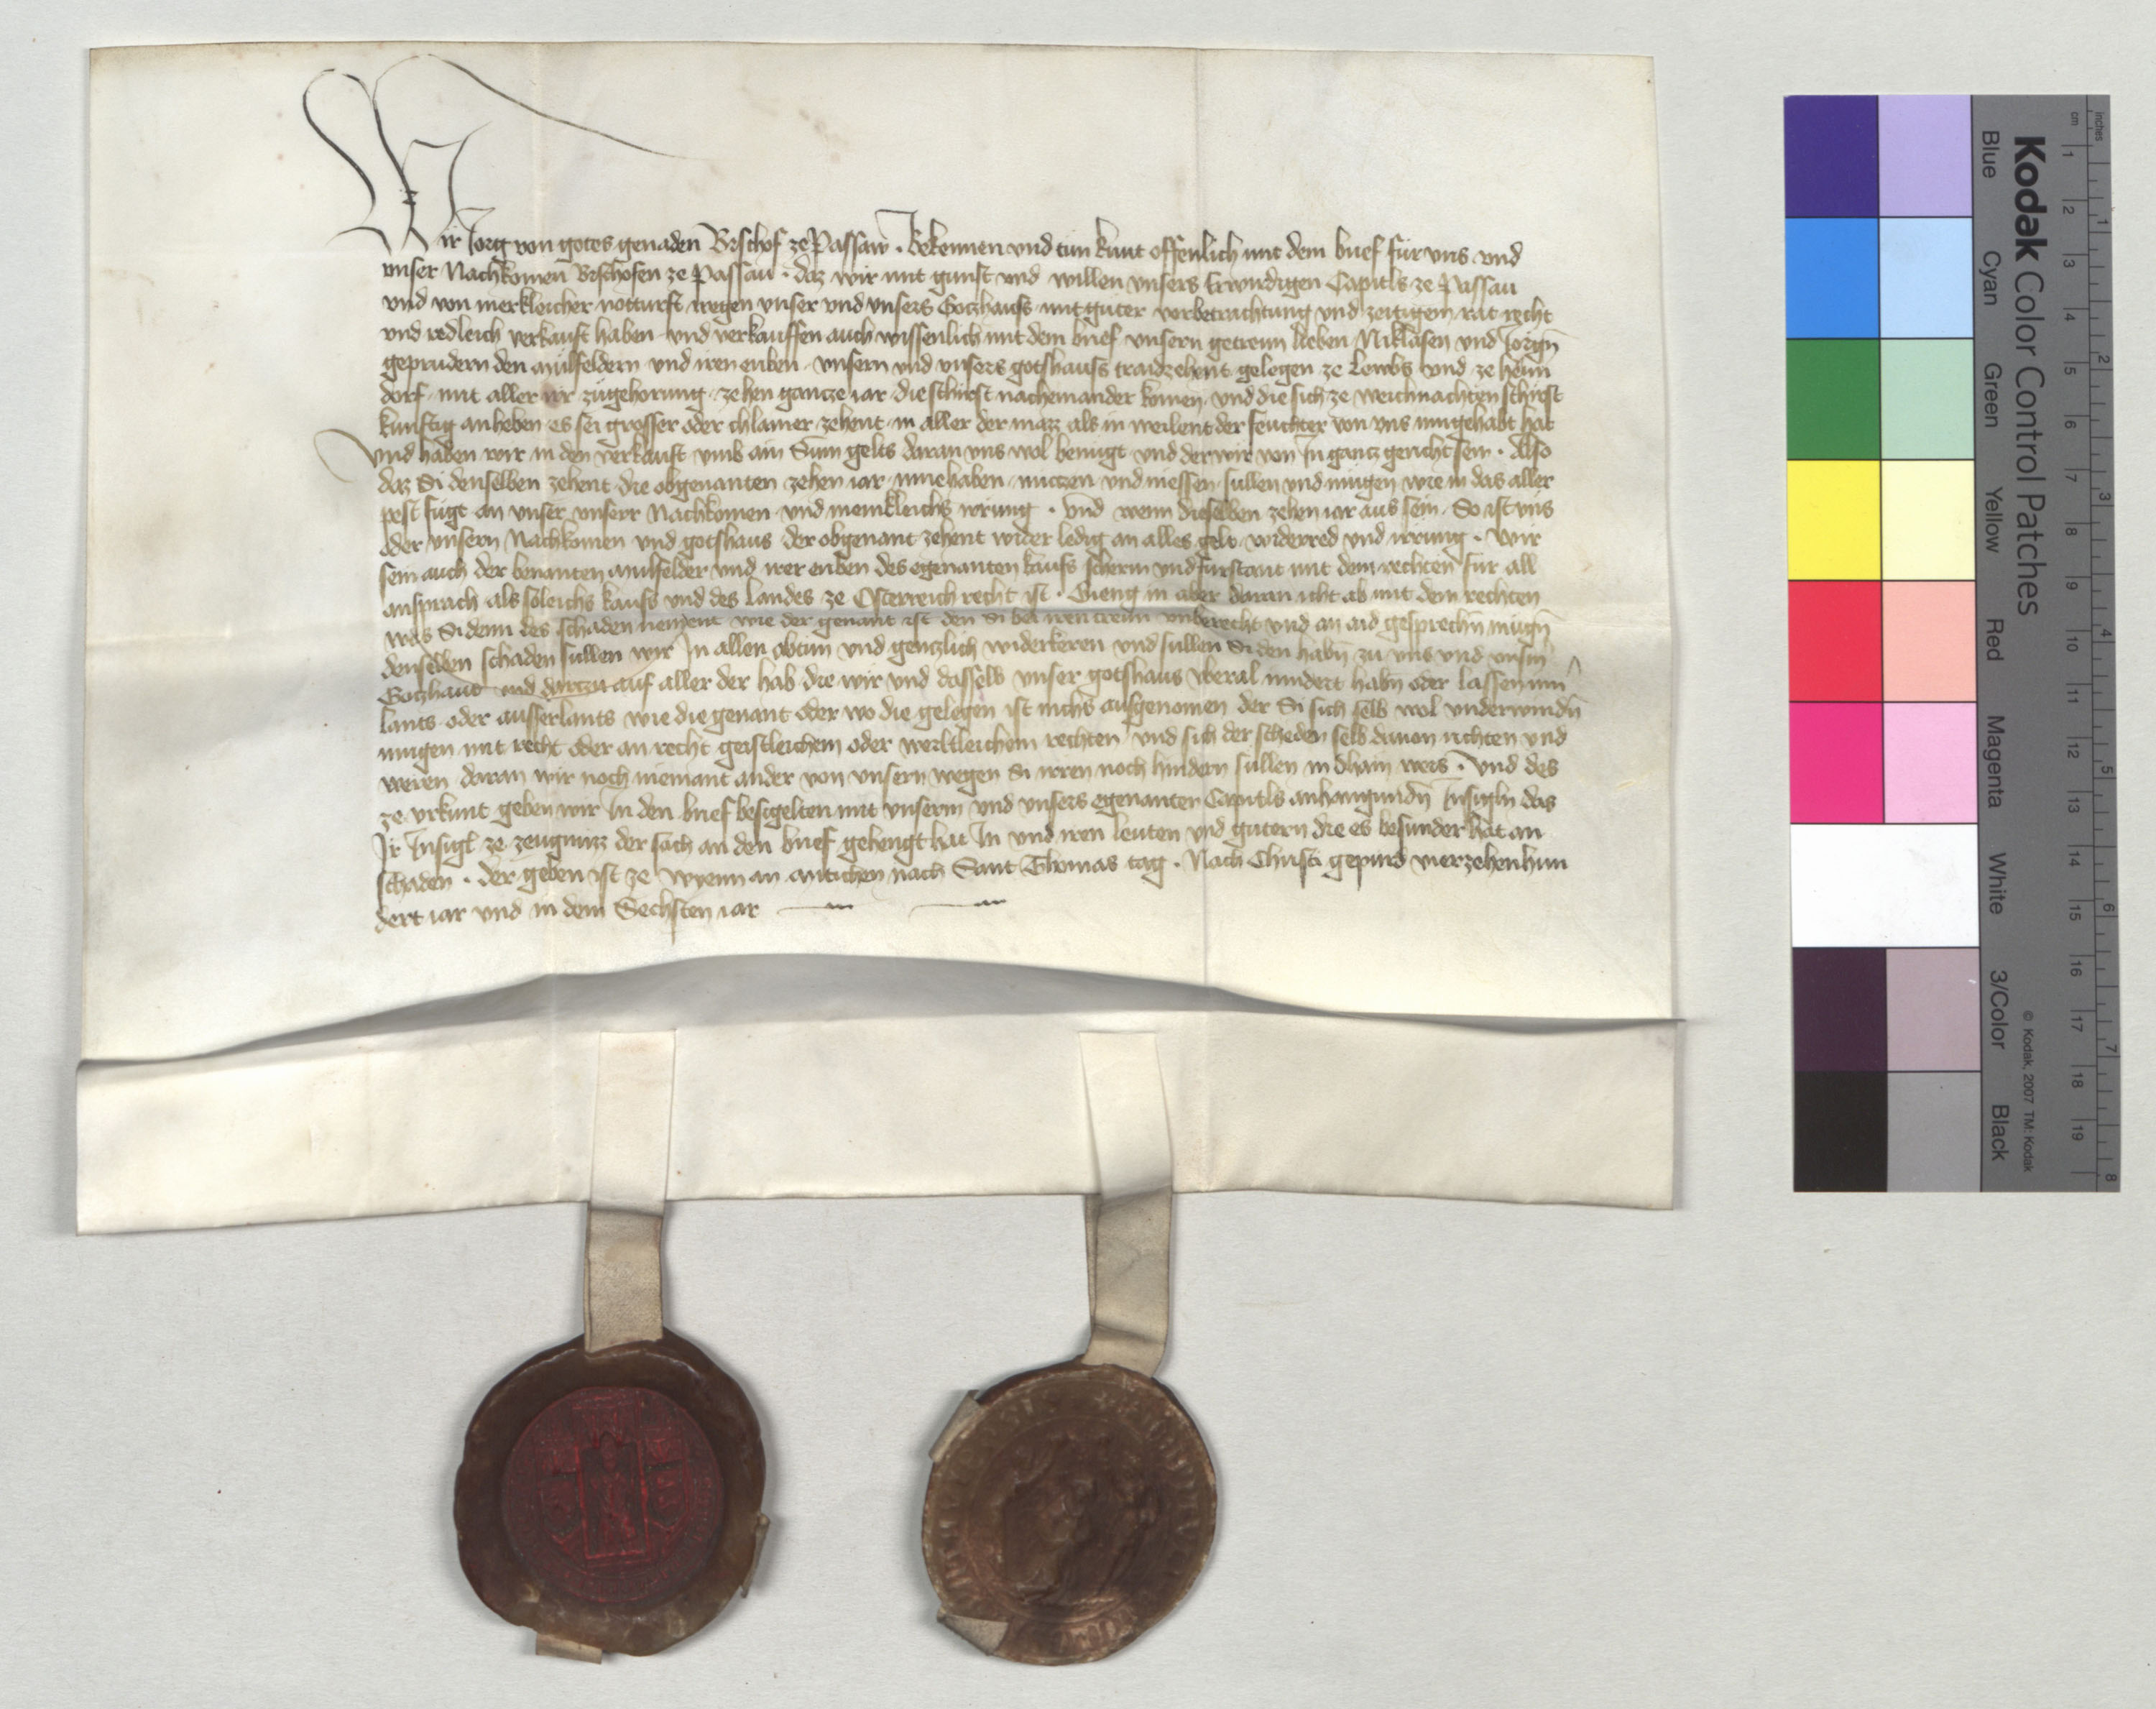 Wir Jorg von gotes genaden Bischof ze Passaw . Bekennen vnd tun kunt offenlich mit dem brief fur vns vnd
vnser Nachkomen Bischofen ze Passau . daz wir mit gunst vnd willen vnsers Erwirdigen Capitls ze Passau
vnd von merkleicher notturft wegen vnser vnd vnsers Gotzhauss mit guter vorbetrachtung vnd zeitigem rat recht
vnd redleich verkauft haben vnd verkauffen auch wissenlich mit dem brief vnsern getrewn lieben Niklasen vnd Jorign
geprudern den mulfeldern vnd iren eriben vnsern vnd vnsers gotshauss traidzehent gelegen ze Lewbs vnd ze
dorf mit aller ir zugehorung zehen gancze iar die schirst nacheinander komen vnd die sich ze weichnachten schirst
kunftig anheben es sei grosser oder chlainer zehent in aller der mazz als in weilent der feuchter von vns inngehabt hat
vnd haben wir in den verkauft vmb ain Sum gelts daran vns wol benugt vnd der wir von In gancz gericht sein . Also
daz Si denselben zehent die obgenanten zehen iar innehaben nuczen vnd niessen sullen vnd mugen wie in das aller
pest fugt an vnser vnserr Nachkomen vnd menikleichs irrung . vnd wenn dieselben zehen iar aus sein . So ist vns
oder vnsern Nachkomen vnd gotshaus der obgenant zehent wider ledig an alles gelt widerred vnd irrung . Wir
sein auch der benanten mulfelder vnd irer eriben des egenanten kaufs scherm vnd furstant mit dem rechten fur all
ansprach als soleichs kaufs vnd des Landes ze Osterreich recht ist . Gieng in aber daran icht ab mit dem rechten
was Si denn des schaden nement wie der genant ist den Si bei iren trewn vnberecht vnd an aid gesprechn mugn
denselben schaden sullen wir In allen abtun vnd genczlich widerkeren vnd sullen Si den habn zu vns vnd vnsm
Gotzhaus vnd darczu auf aller der hab die wir vnd dasselb vnser gotshaus vberal nindert habn oder lassen inn
lants oder ausserlants wie die genant oder wo die gelegen ist nichs ausgenomen der Si sich selb wol vnderwindn
mugen mit recht oder an recht geistleichem oder werltleichem rechten vnd sich der scheden selb dauon richten vnd
weren daran wir noch niemant ander von vnsern wegen Si irren noch hindern sullen in dhain weis . Vnd des
ze vrkunt geben wir In den brief besigelten mit vnserm vnd vnsers egenanten Capitls anhangundn Insigln das
Ir Insigl ze zeugnuzz der sach an den brief gehengt hat In vnd iren leuten vnd gutern die es besunder hat an
schaden . der geben ist ze Wyenn an nach Sant Thomas tag . Nach Christi gepurd vierzehenhun
dert iar vnd in dem Sechsten iar
Kodak Color Control Patches
Blue Cyan Green Yellow Red Magenta White 3/Color Black
© Kodak, 2007 TM: Kodak
cm 1 2 3 4 5 6 7 8 9 10 11 12 13 14 15 16 17 18 19
inches 1 2 3 4 5 6 7 8